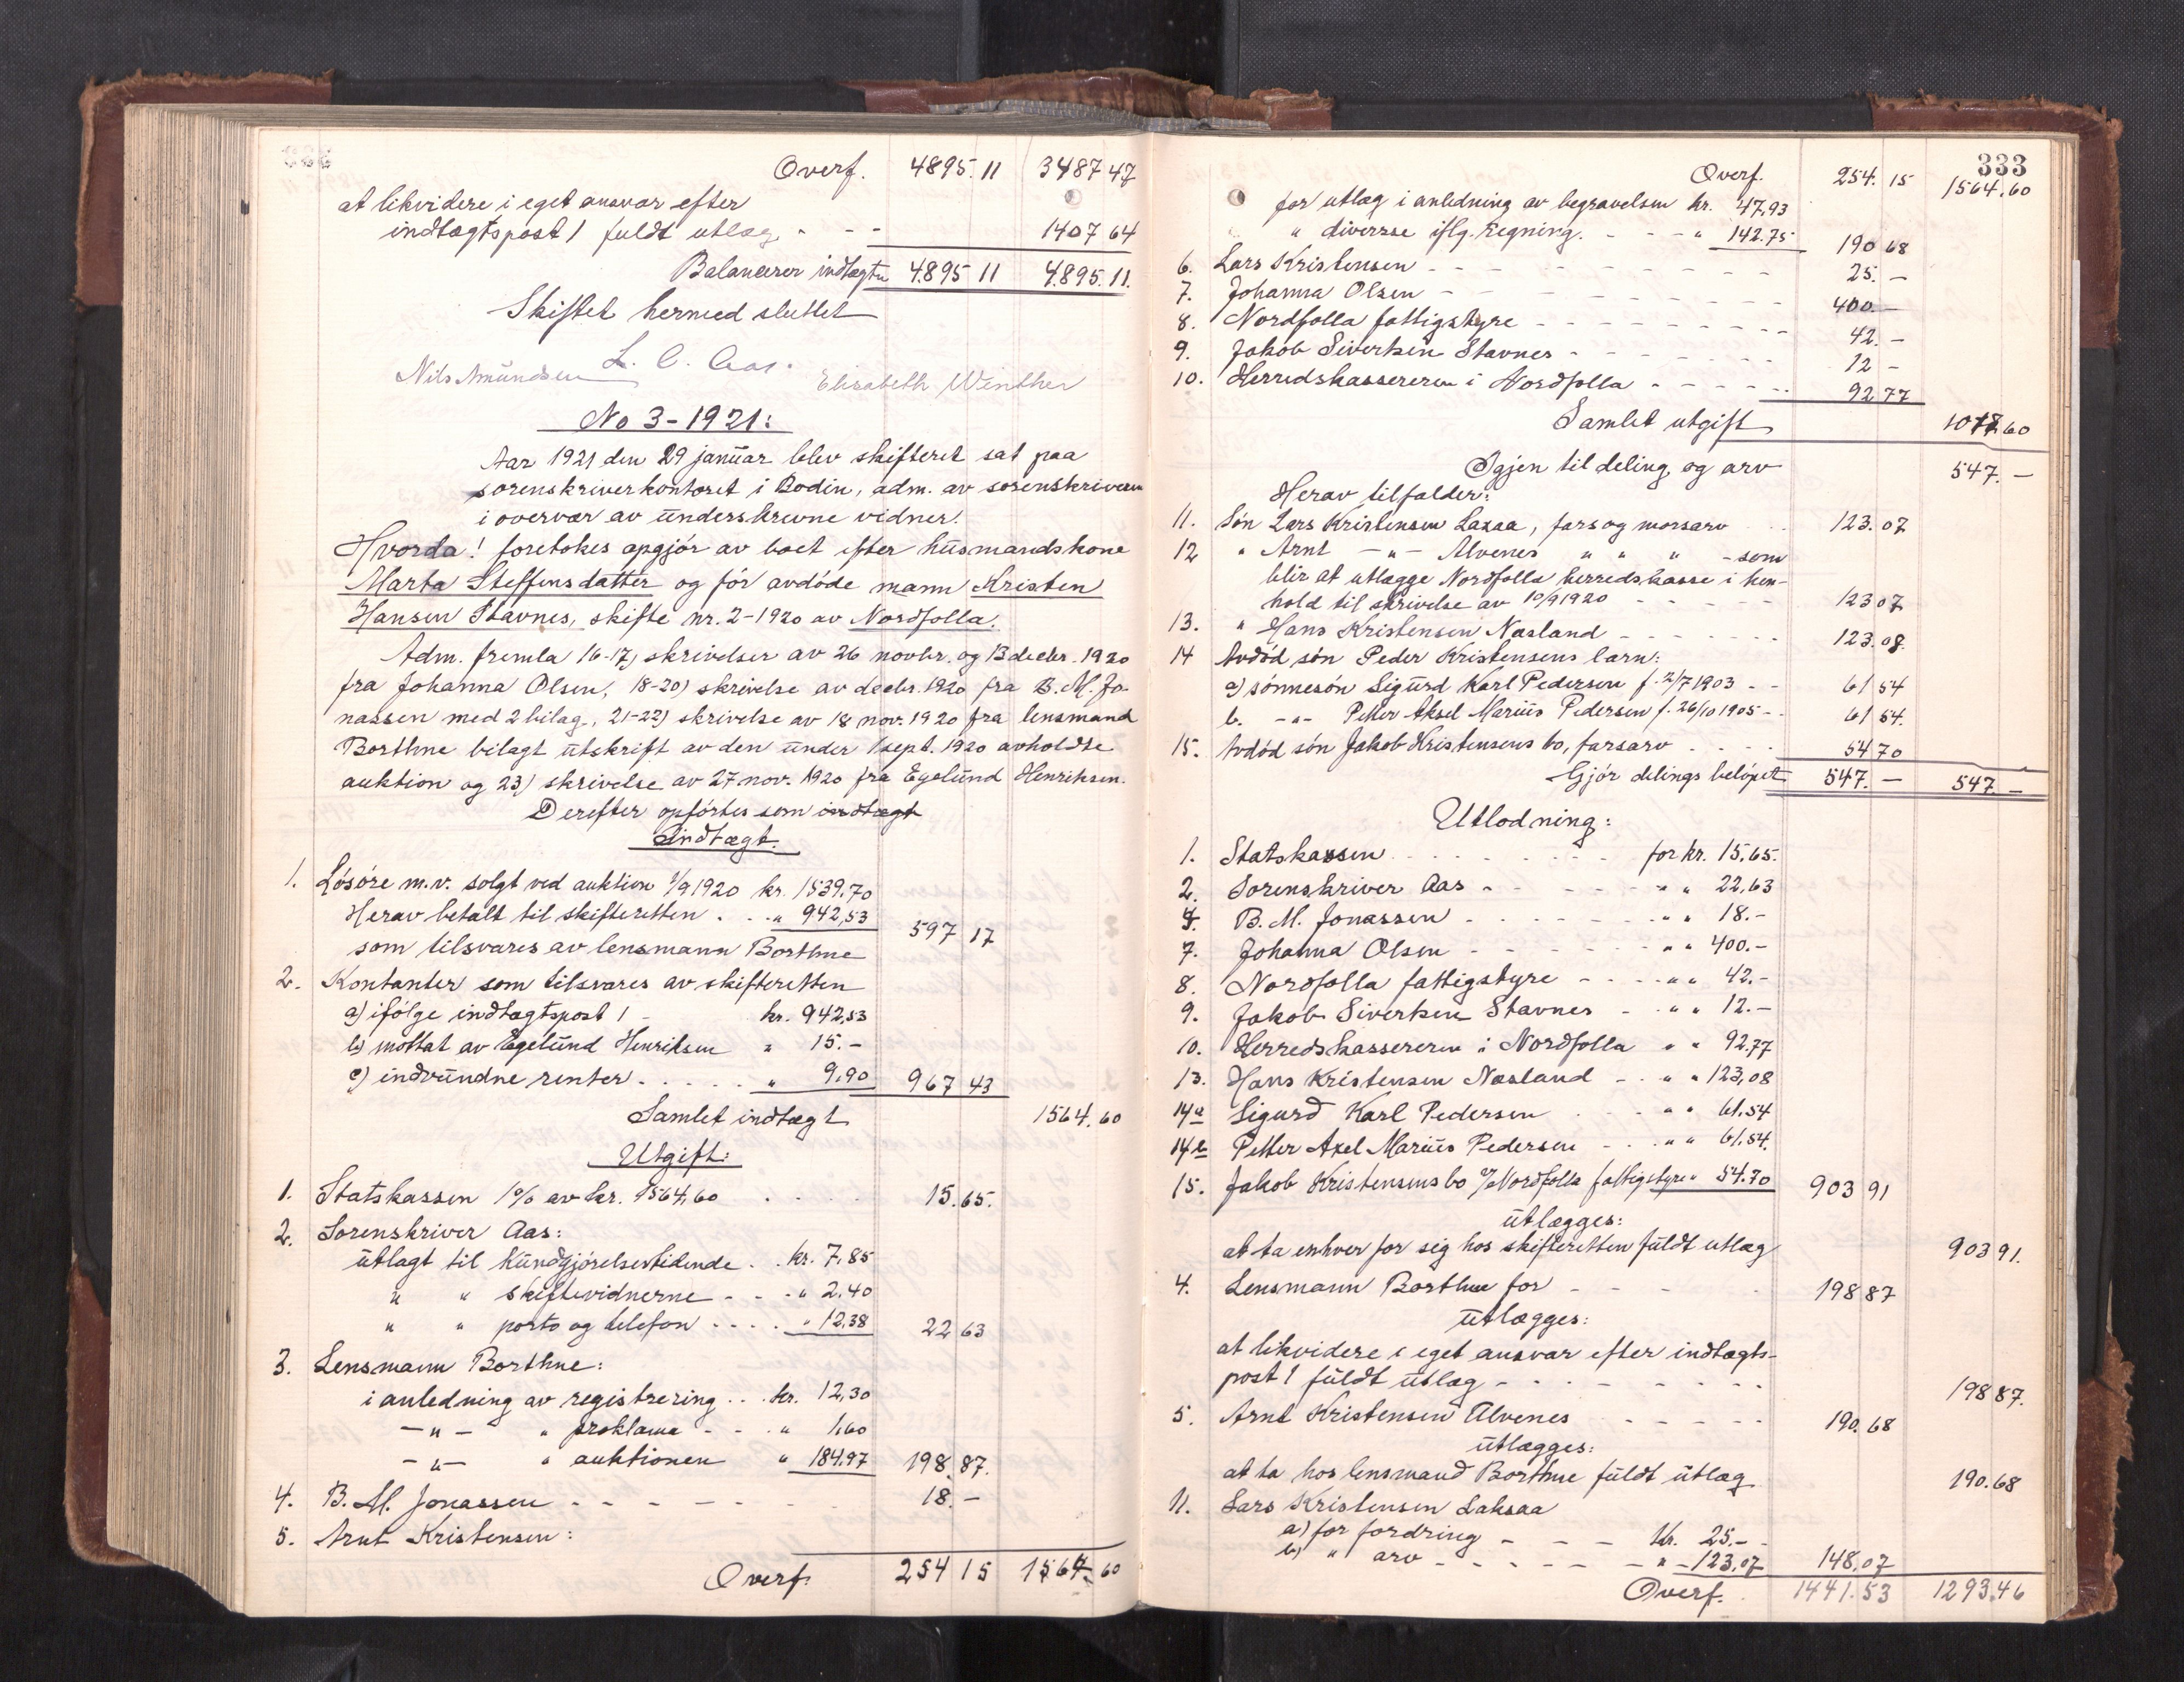 Overf. 4895.11 3487 47
at likvidere i eget ansvar efter
indtægtspost 1 fuldt utlæg - - - 1407 64
Balancerer indtægten 4895 11 4895.11.
Skiftet hermed sluttet
L. C. Aas.
Nils Amundsen Elisabeth Winther
No 3-1921:
Aar 1921 den 29 januar blev skifteret sat paa
sorenskriverkontoret i Bodin, adm. av sorenskriveren
i overvær av underskrevne vidner.
Hvorda! foretokes opgjør av boet efter husmandskone
Marta Steffensdatter og før avdøde mann Kristen
Hansen Stavnes, skifte nr. 2-1920 av Nordfolla.
Adm. fremla 16-17) skrivelser av 26 novbr. og 13 decbr. 1920
fra Johanna Olsen, 18-20) skrivelse av decbr. 1920 fra B. M. Jo-
nassen med 2 bilag, 21-22) skrivelse av 18 nov. 1920 fra lensmand
Borthne bilagt utskrift av den under 1 sept. 1920 avholdte
auktion og 23) skrivelse av 27 nov. 1920 fra Egelund Henriksen.
Derefter opførtes som indtægt
Indtægt.
1. Løsøre m.v. solgt ved auktion 1/9 1920 kr. 1539.70
Herav betalt til skifteretten . . " 942,53
som tilsvares av lensmann Borthne 597 17
2. Kontanter som tilsvares av skifteretten
a) ifølge indtægtspost 1 - kr. 942,53
b) mottat av Egelund Henriksen " 15.-
c) indvundne renter . . . . . " 9,90 967 43
Samlet indtægt 1564.60
Utgift:
1. Statskassen 1% av kr. 1564,60 . . . . 15.65.
2. Sorenskriver Aas:
utlagt til Kundgjørelsestidende . . kr. 7,85
" " skiftevidnerne - - - " 2.40
" " porto og telefon . . . . " 12,38 22 63
3. Lensmann Borthne:
i anledning av registrering . . . kr. 12,30
-"- " proklama - - . " 1,60
-"- " auktionen " 184,97 198.87.
4. B. M. Jonassen - - - - - - - 18.-
5. Arnt Kristensen:
Overf. 254 15 1564.60
333
Overf. 254.15 1564.60
for utlæg i anledning av begravelsen kr. 47,93
" diverse iflg. regning. - - - " 142.75 190 68
6. Lars Kristensen - - - - - - - - - 25.-
7. Johanna Olsen - - - - - - - - - 400.-
8. Nordfolla fattigstyre - - - - - - - - 42.-
9. Jakob Sivertsen Stavnes - - - - - - 12 -
10. Herredskassereren i Nordfolla - - - - - - 92 77
Samlet utgift 1017.60
Igjen til deling og arv 547.-
Herav tilfalder:
11. Søn Lars Kristensen Laxaa, fars og morsarv . . 123.07
12 " Arnt -"- Alvenes " " " - som
blir at utlægge Nordfolla herredskasse i hen-
hold til skrivelse av 10/9 1920 - - - - - 123 07
13. " Hans Kristensen Næsland - - - - - - 123.08.
14 Avdød søn Peder Kristensens barn:
a) sønnesøn Sigurd Karl Pedersen f. 2/7 1903 - - 61 54
b. -"- Petter Aksel Marius Pedersen f. 26/10 1905 - - 61 54.
15. Avdød søn Jakob Kristensens bo, farsarv . . . . 54 70
Gjør delings beløpet 547.- 547.-
Utlodning:
1. Statskassen . . . . . . . . for kr. 15,65.
2. Sorenskriver Aas - - - - - - " " 22,63
4. B. M. Jonassen - - - - - - - " " 18.-
7. Johanna Olsen - - - - - - - " " 400.-
8. Nordfolla fattigstyre - - - - " " 42.-
9. Jakob Sivertsen Stavnes - . " " 12.-
10. Herredskassereren i Nordfolla " " 92.77
13. Hans Kristensen Næsland - . " " 123,08
14a Sigurd Karl Pedersen . . . " " 61.54
14b Petter Axel Marius Pedersen - . . " " 61.54.
15. Jakob Kristensens bo v/Nordfolla fattigstyre " 54.70 903 91
utlægges:
at ta enhver for sig hos skifteretten fuldt utlæg 903 91.
4. Lensmann Borthne for - - - - . 198 87
utlægges:
at likvidere i eget ansvar efter indtægts-
post 1 fuldt utlæg - - - - - - - - 198 87.
5. Arnt Kristensen Alvenes - - - - - 190.68
utlægges:
at ta hos lensmand Borthne fuldt utlæg 190.68
11. Lars Kristensen Laksaa
a) for fordring - - - Kr. 25.-
b) " arv - - - - - " - 123,07 148,07
Overf. 1441.53 1293.46